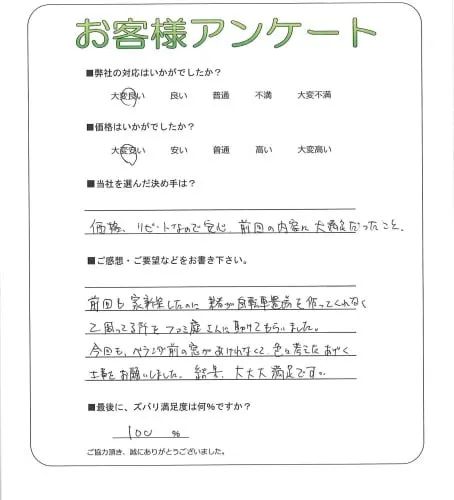 お客様アンケート
■弊社の対応はいかがでしたか？
大変良い 良い 普通 不満 大変不満
■価格はいかがでしたか？
大変安い 安い 普通 高い 大変高い
■当社を選んだ決め手は？
価格、リピートなので安心 前回の内容に大満足だったこと。
■ご感想・ご要望などをお書き下さい。
前回も家新築したのに業者が自転車置場を作ってくれなく
て困ってる所をファミ庭さんに助けてもらいました。
今回も、ベランダ前の窓があけれなくて、色々考えたあげく
工事をお願いしました。結果、大大大満足です。
■最後に、ズバリ満足度は何％ですか？
100 %
ご協力頂き、誠にありがとうございました。